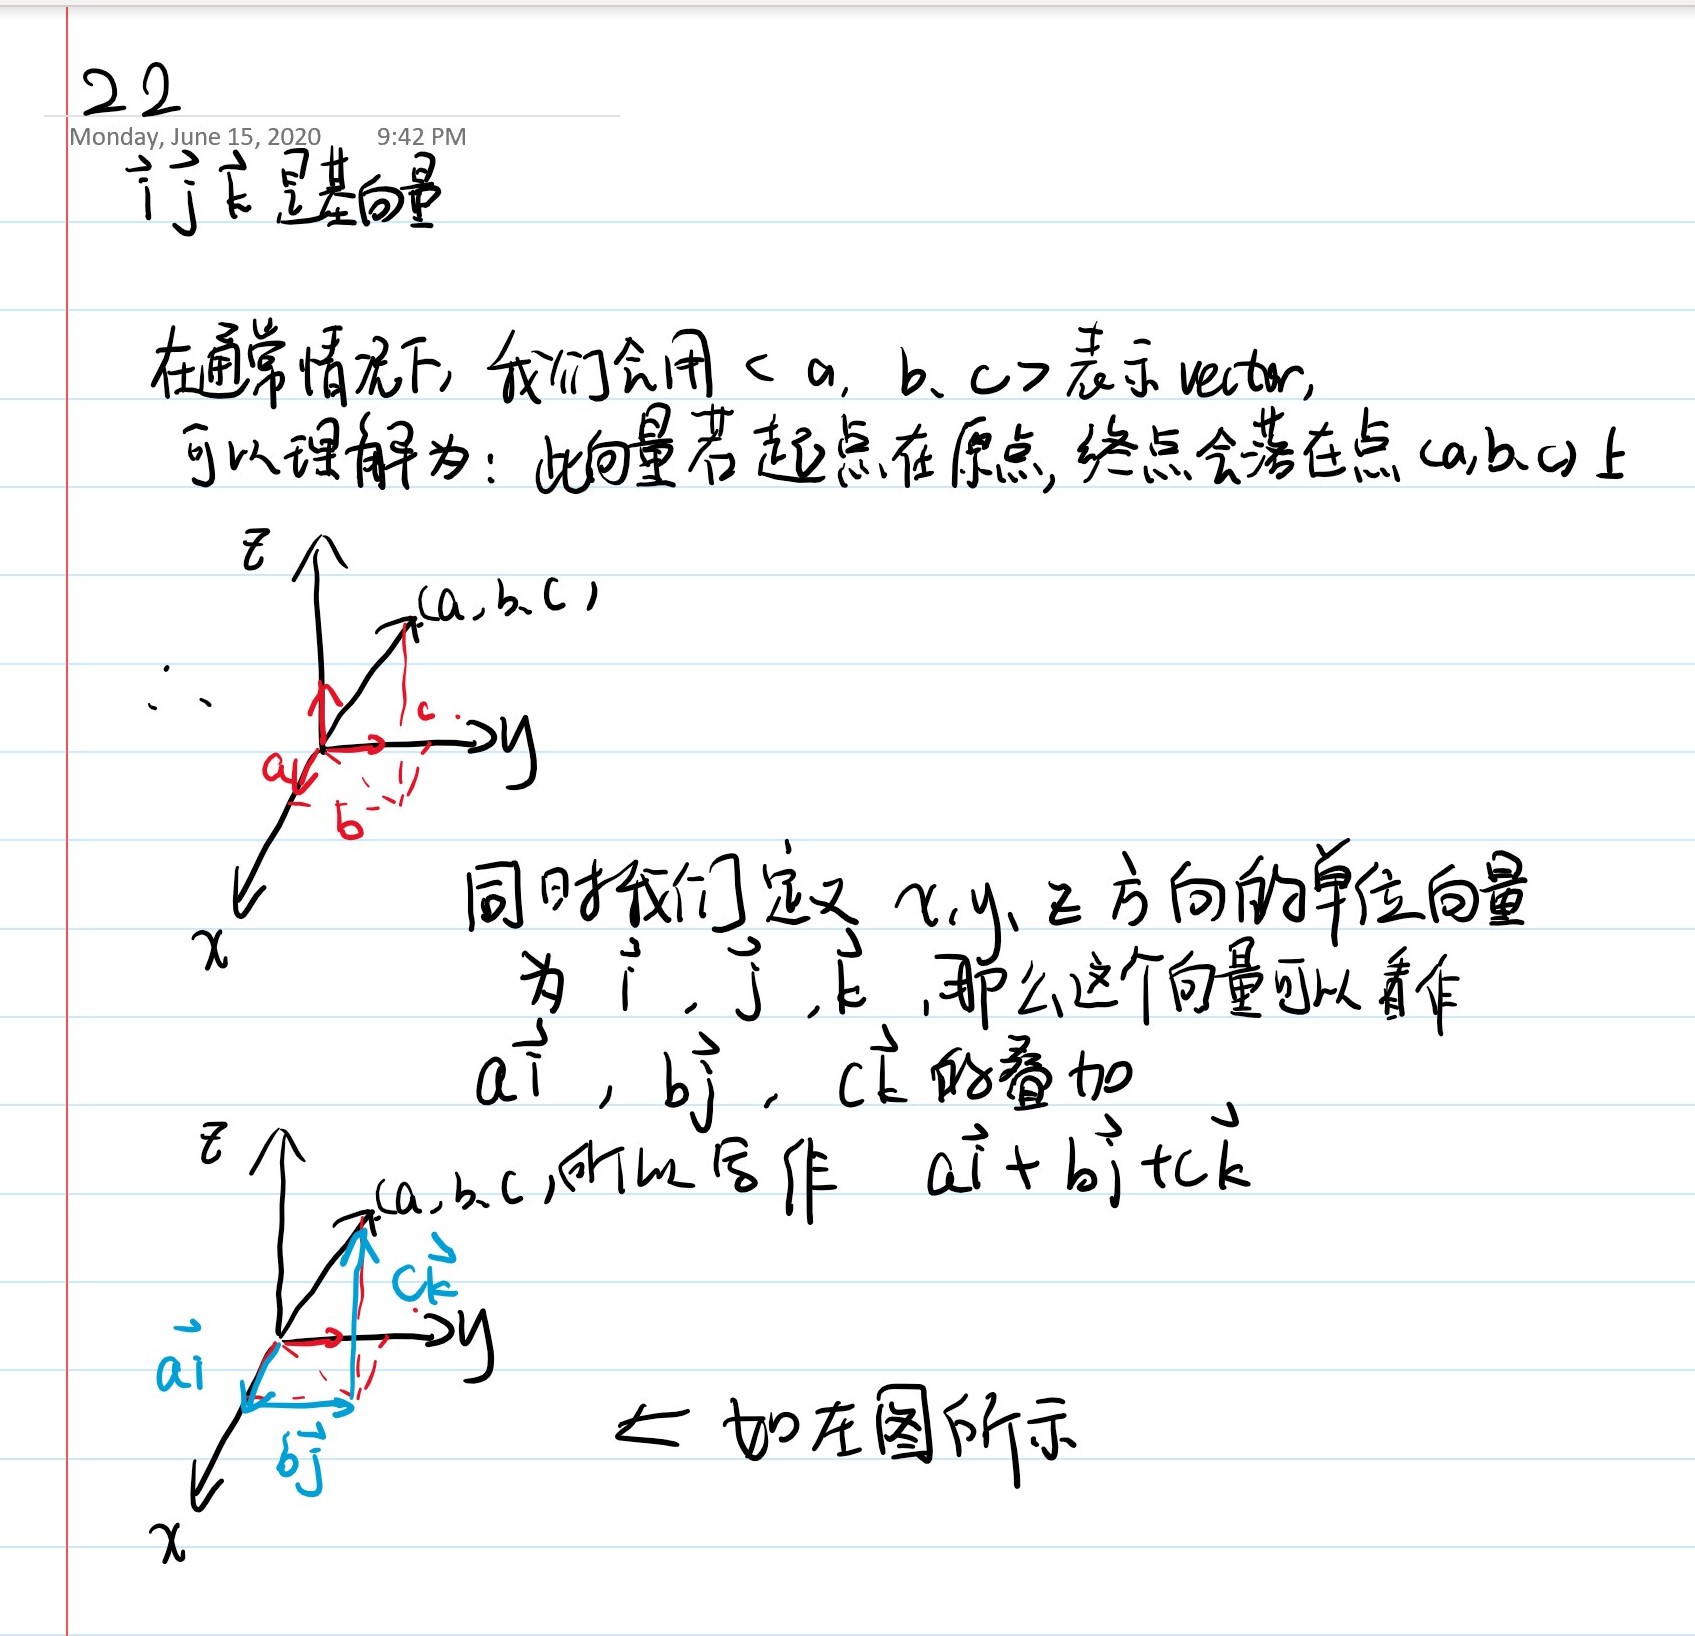 22
Monday, June 15, 2020 9:42 PM
i⃗ j⃗ k⃗ 是基向量
在通常情况下, 我们会用 < a, b, c> 表示 vector,
可以理解为: 此向量若起点在原点, 终点会落在点 (a,b,c) 上
z
(a, b, c)
∴
c
y
a
b
x
同时我们定义 x, y, z 方向的单位向量
为 i⃗ , j⃗ , k⃗ ,那么这个向量可以看作
ai⃗ , bj⃗ , ck⃗ 的叠加
z
(a, b, c) 所以写作 ai⃗ + bj⃗ + ck⃗
ck⃗
y
ai⃗
bj⃗
← 如左图所示
x